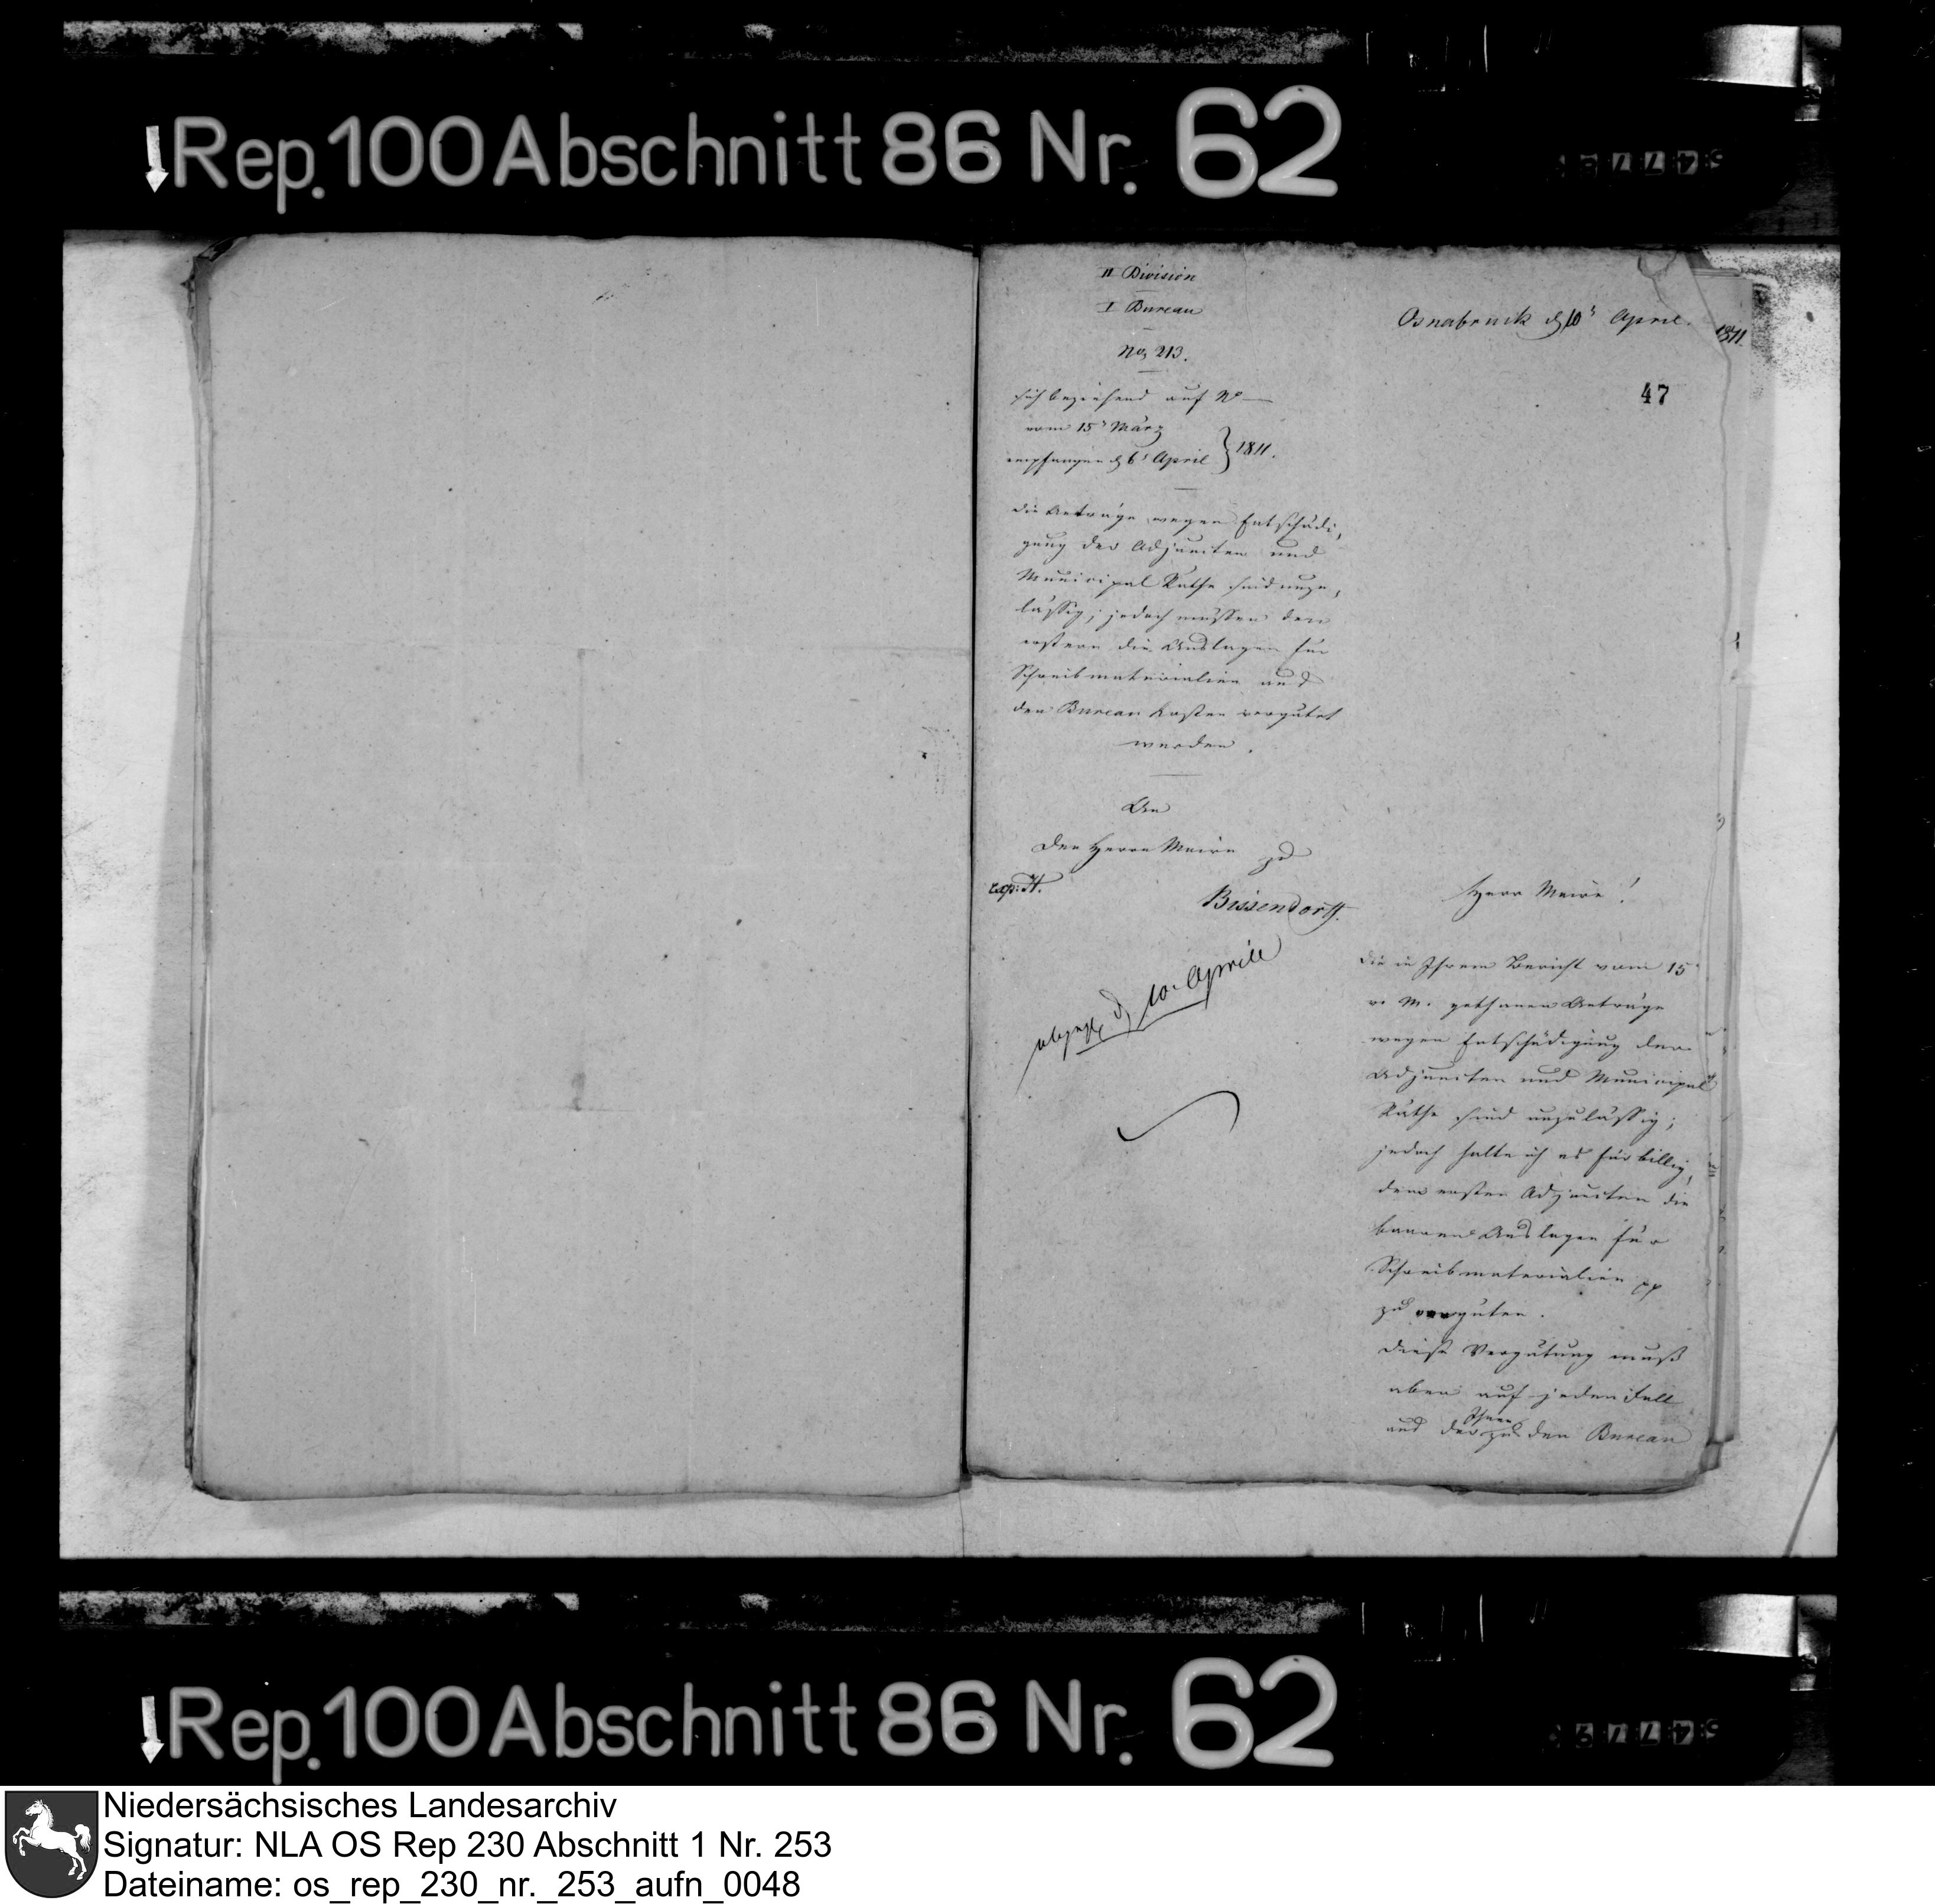 Rep. 100 Abschnitt 86 Nr. 62
II Division
I Bureau
No 213.
sich beziehend auf No —
vom 15t März
empfangen d 6t April } 1811.
die Anträge wegen Entschädi-
gung der Adjuncten und
Municipal Räthe sind unzu-
lässig; jedoch müssen den
erstern die Auslagen für
Schreibmaterialien aus
den Bureau Kosten vergütet
werden.
An
den Herrn Maire zu
exp: H.
Bissendorff.
abges. d 10. Aprill
Osnabruck d 10t April 1811.
47
Herr Maire!
Die in Ihrem Bericht vom 15t
v. M. gethanen Anträge
wegen Entschädigung der
Adjuncten und Municipal
Räthe sind unzulässig;
jedoch halte ich es für billig,
dem ersten Adjuncten die
baaren Auslagen für
Schreibmaterialien pp
zu vergüten.
Diese Vergütung muß
aber auf jeden Fall
aus der Ihnen zu den Bureau
Rep. 100 Abschnitt 86 Nr. 62
Niedersächsisches Landesarchiv
Signatur: NLA OS Rep 230 Abschnitt 1 Nr. 253
Dateiname: os_rep_230_nr._253_aufn_0048